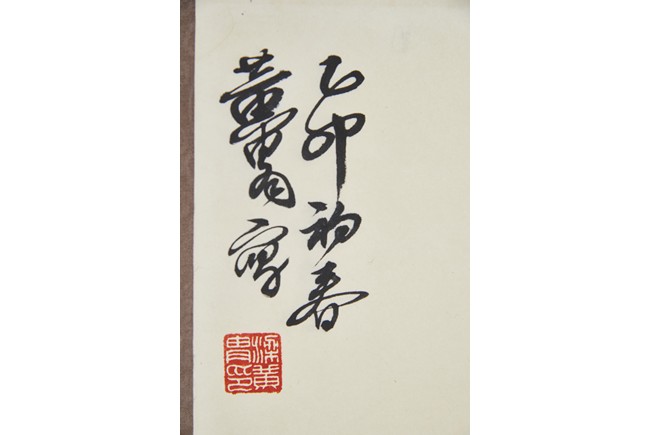 乙卯初春
黄胄写
梁黄胄印